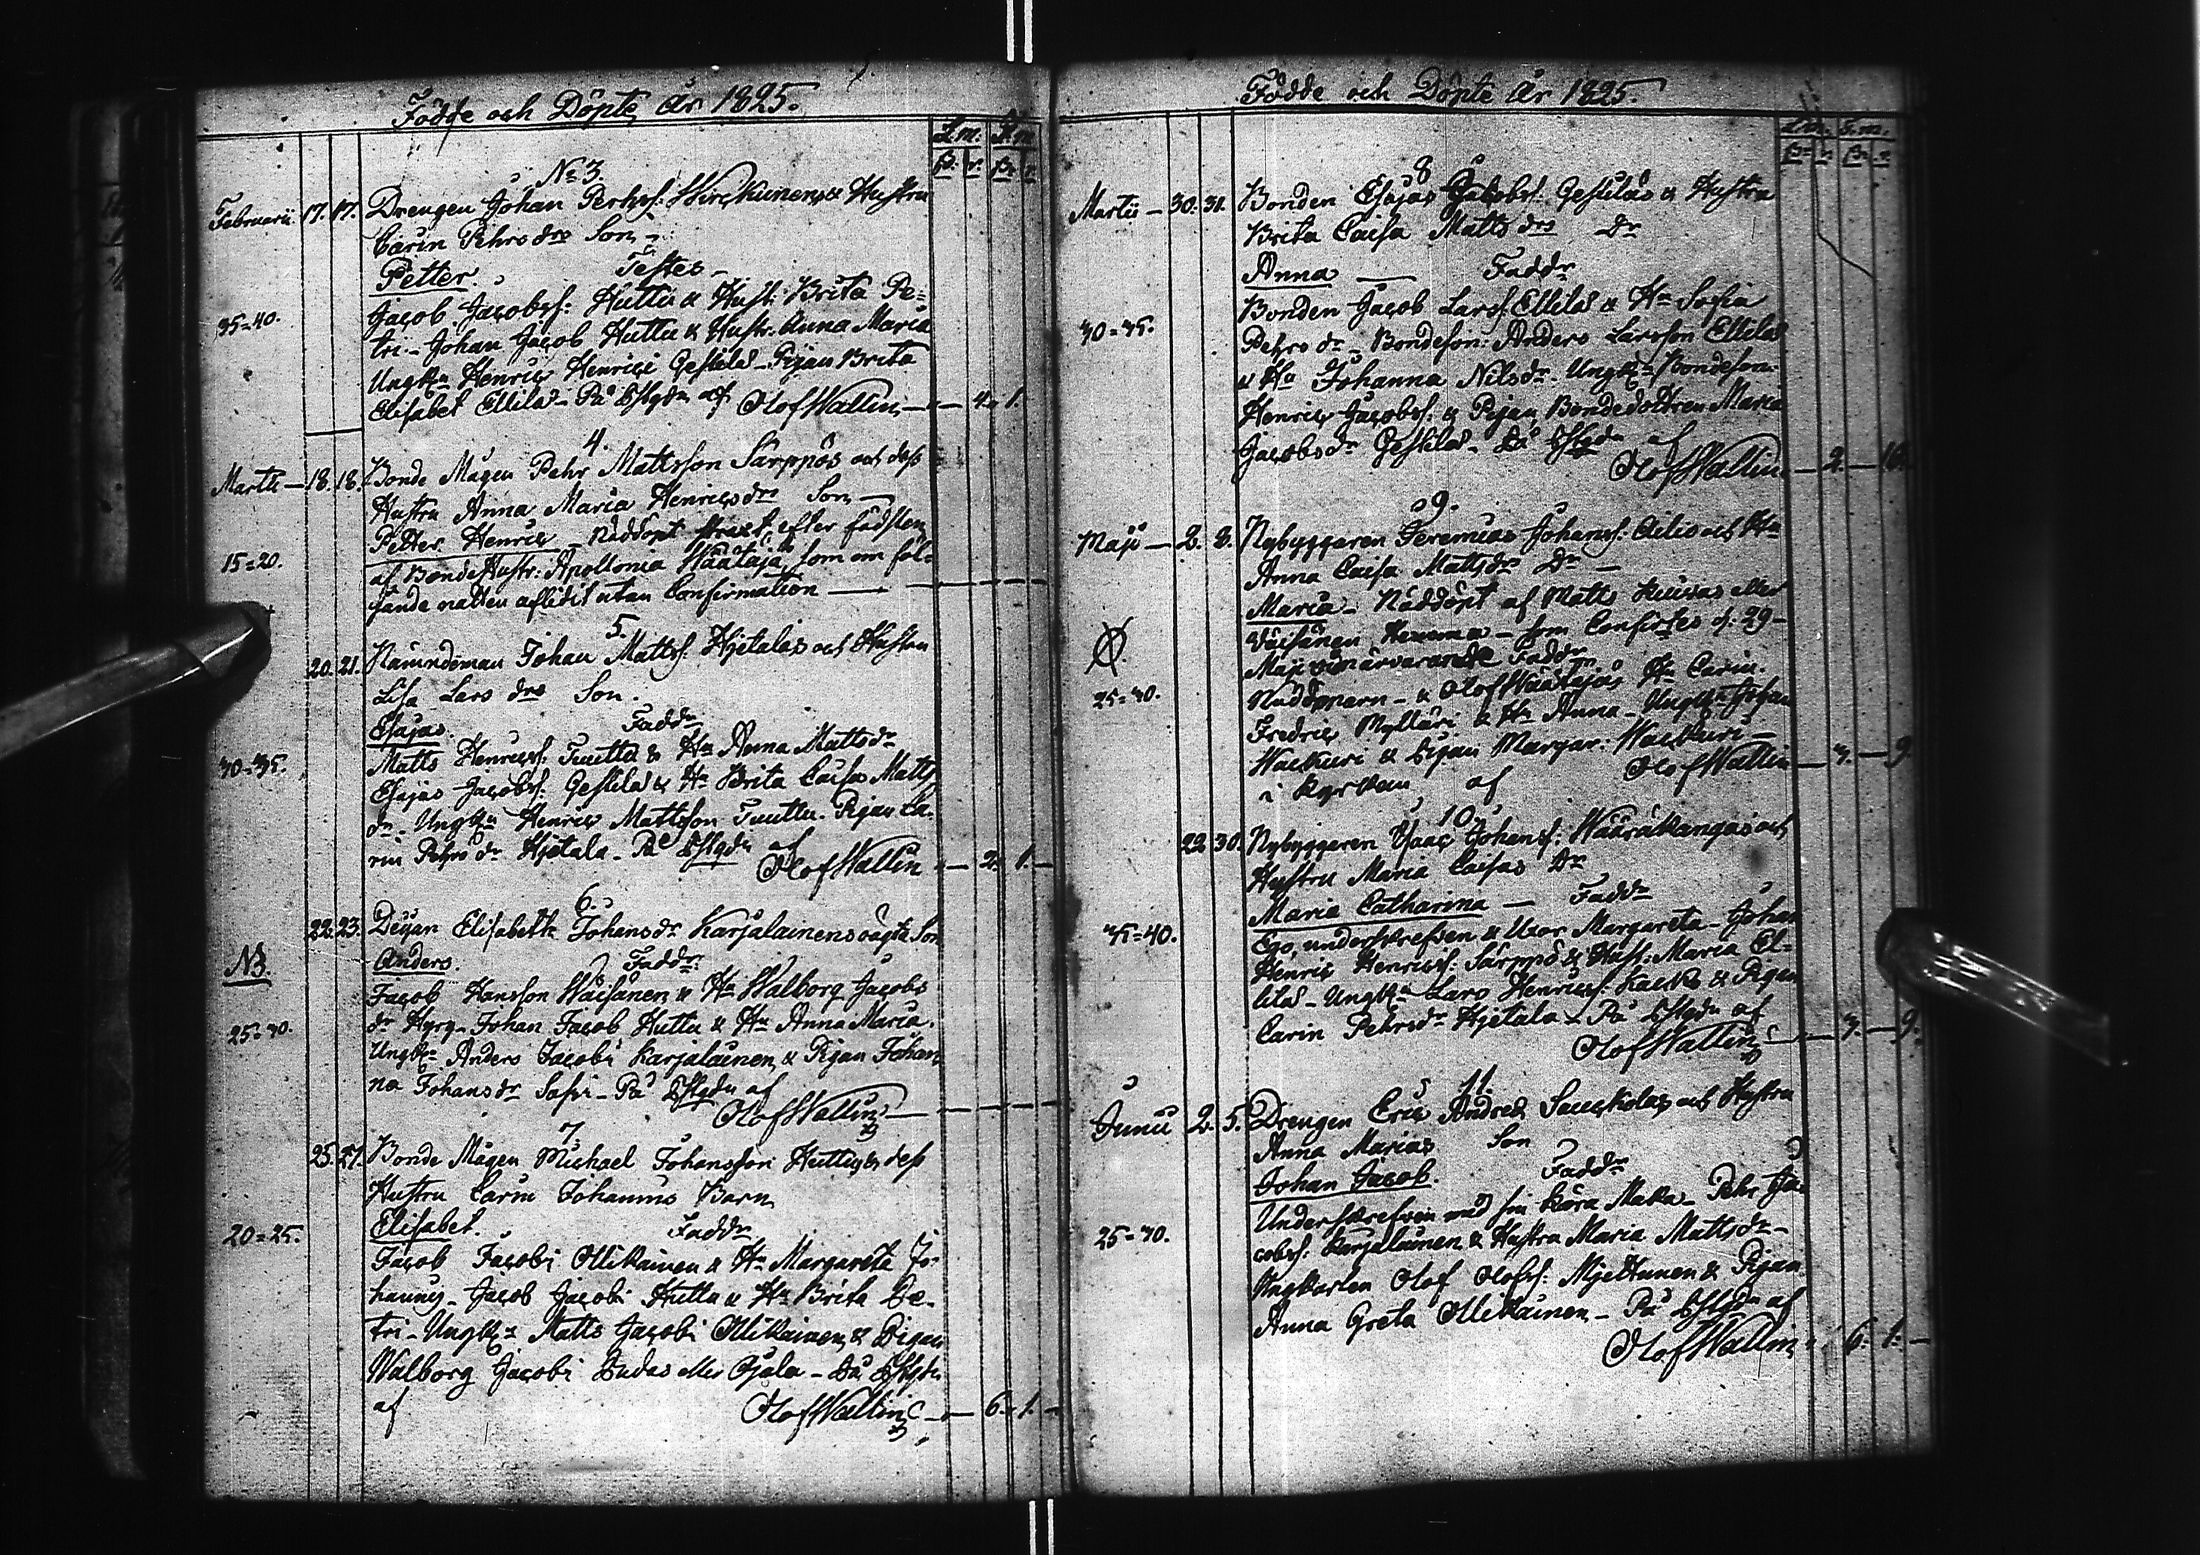 Födde och Döpte År 1825.
L.m. S.m.
β. r. β. r.
No 3.
Februarii. 17. 17. Drengen Johan Perhrs: Hirckunens & Hustru
Carin Pehrs drs Son
Petter. Testes
Jacob Jacobss: Huttu & Hust: Brita Pe-
35=40. tri - Johan Jacob Huttu & Hustr: Anna Maria
Ungk:n Henric Henrici Gestilä - Pigan Brita
Elisabet Ellilä - På af Olof Wallin — 4. 1.
4.
Martii — 18. 18. Bonde Mågen Pehr Mattsson Särppös och dess
Hustru Anna Maria Henricsdrs Son —
Petter Henric - Näddöpt strax efter födslen
15=20. af Bonde Hustr: Apollonia Häätäjä, som om föl-
jande natten aflidit utan Confirmation —
5.
20. 21. Nämndeman Johan Mattss. Hjetalas och Hustru
Lisa Lars drs Son.
Esajas. Faddr
Matts Henricss: Tuuttu & Hu Anna Mattsdr
30=35. Esajas Jacobss: Gestilä & Hu Brita Caisa Matts
dr - Ungkn Henric Mattsson Tuuttu - Pigan Ca-
rin Pehrs dr Hjetala - På af
Olof Wallin — 2. 1. —
6.
22. 23. Pigan Elisabeth Johansdr Karjalainens oägta Son
NB. Anders. Faddr
Jacob Hansson Wäisänen & Hu Walborg Jacobs
25=30. dr Hyry - Johan Jacob Huttu & Hu Anna Maria.
Ungkn Anders Jacobi Karjalainen & Pigan Johan-
na Johansdr - På af
Olof Wallin —
7.
25. 27. Bonde Mågen Michael Johansson Huttus & dess
Hustru Carin Johannis Barn
Elisabet. Faddr
20=25. Jacob Jacobi Ollikainen & Hu Margareta Jo-
hannis - Jacob Jacobi Huttu & Hu Brita Pe-
tri - Ungkn Matts Jacobi Ollikainen & Pigan
Walborg Jacobi eller - På
af Olof Wallin — 6. 1. —
Födde och Döpte År 1825.
L.m. S.m.
β. r. β. r.
8
Martii — 30. 31. Bonden Esajas Jacobss: Gestiläs & Hustru
Brita Caisa Matts drs Dr
Anna — Faddr
Bonden Jacob Larss. Ellilä & Hu Sofia
30=35. Pehrs dr - Bondeson: Anders Larsson Ellilä
& Hu Johanna Nilsdr. Ungkn Bondeson:
Henric Jacobss: & Pigan Bondedottren Maria
Jacobsdr Gestilä - På af
Olof Wallin — 2. — 10.
9.
Maji — 2. 3. Nybyggaren Jeremias Johanss: och Hu
Anna Caisa Mattsdrs Dr —
Maria - Näddöpt af Matts eller
Väisänen - som Confirtes d. 29
Maji närvarande Faddr
25=30. Nuddöparn - & Olof Häätäjäs Hu Carin.
Fredric Mylläri & Hu Anna - Ungkn Johan
& Pigan Margar: —
i Kyrkan af Olof Wallin — 3. — 9.
10.
22. 30. Nybyggaren Isaac Johanss: Wääräkangas och
Hustru Maria Caisas Dr
Maria Catharina — Faddr
35=40. Ego underskrefven & Uxor Margareta - Johan
Henric Henricss: Särppö & Hust: Maria El-
lilä - Ungkn Lars Henricss: & Pigan
Carin Pehrsdr Hjetala - På af
Olof Wallin — 3. — 9.
11.
Junii 2. 5. Drengen Eric Andreæ och Hustru
Anna Marias Son
Johan Jacob. Faddr
Underskrefven med sin kära Maka - Pehr Ja-
25=30. cobss: Karjalainen & Hustru Maria Mattsdr -
Ungkarlen Olof Olofss: Mjettunen & Pigan
Anna Greta Ollikainen - På af
Olof Wallin 6. 1. —